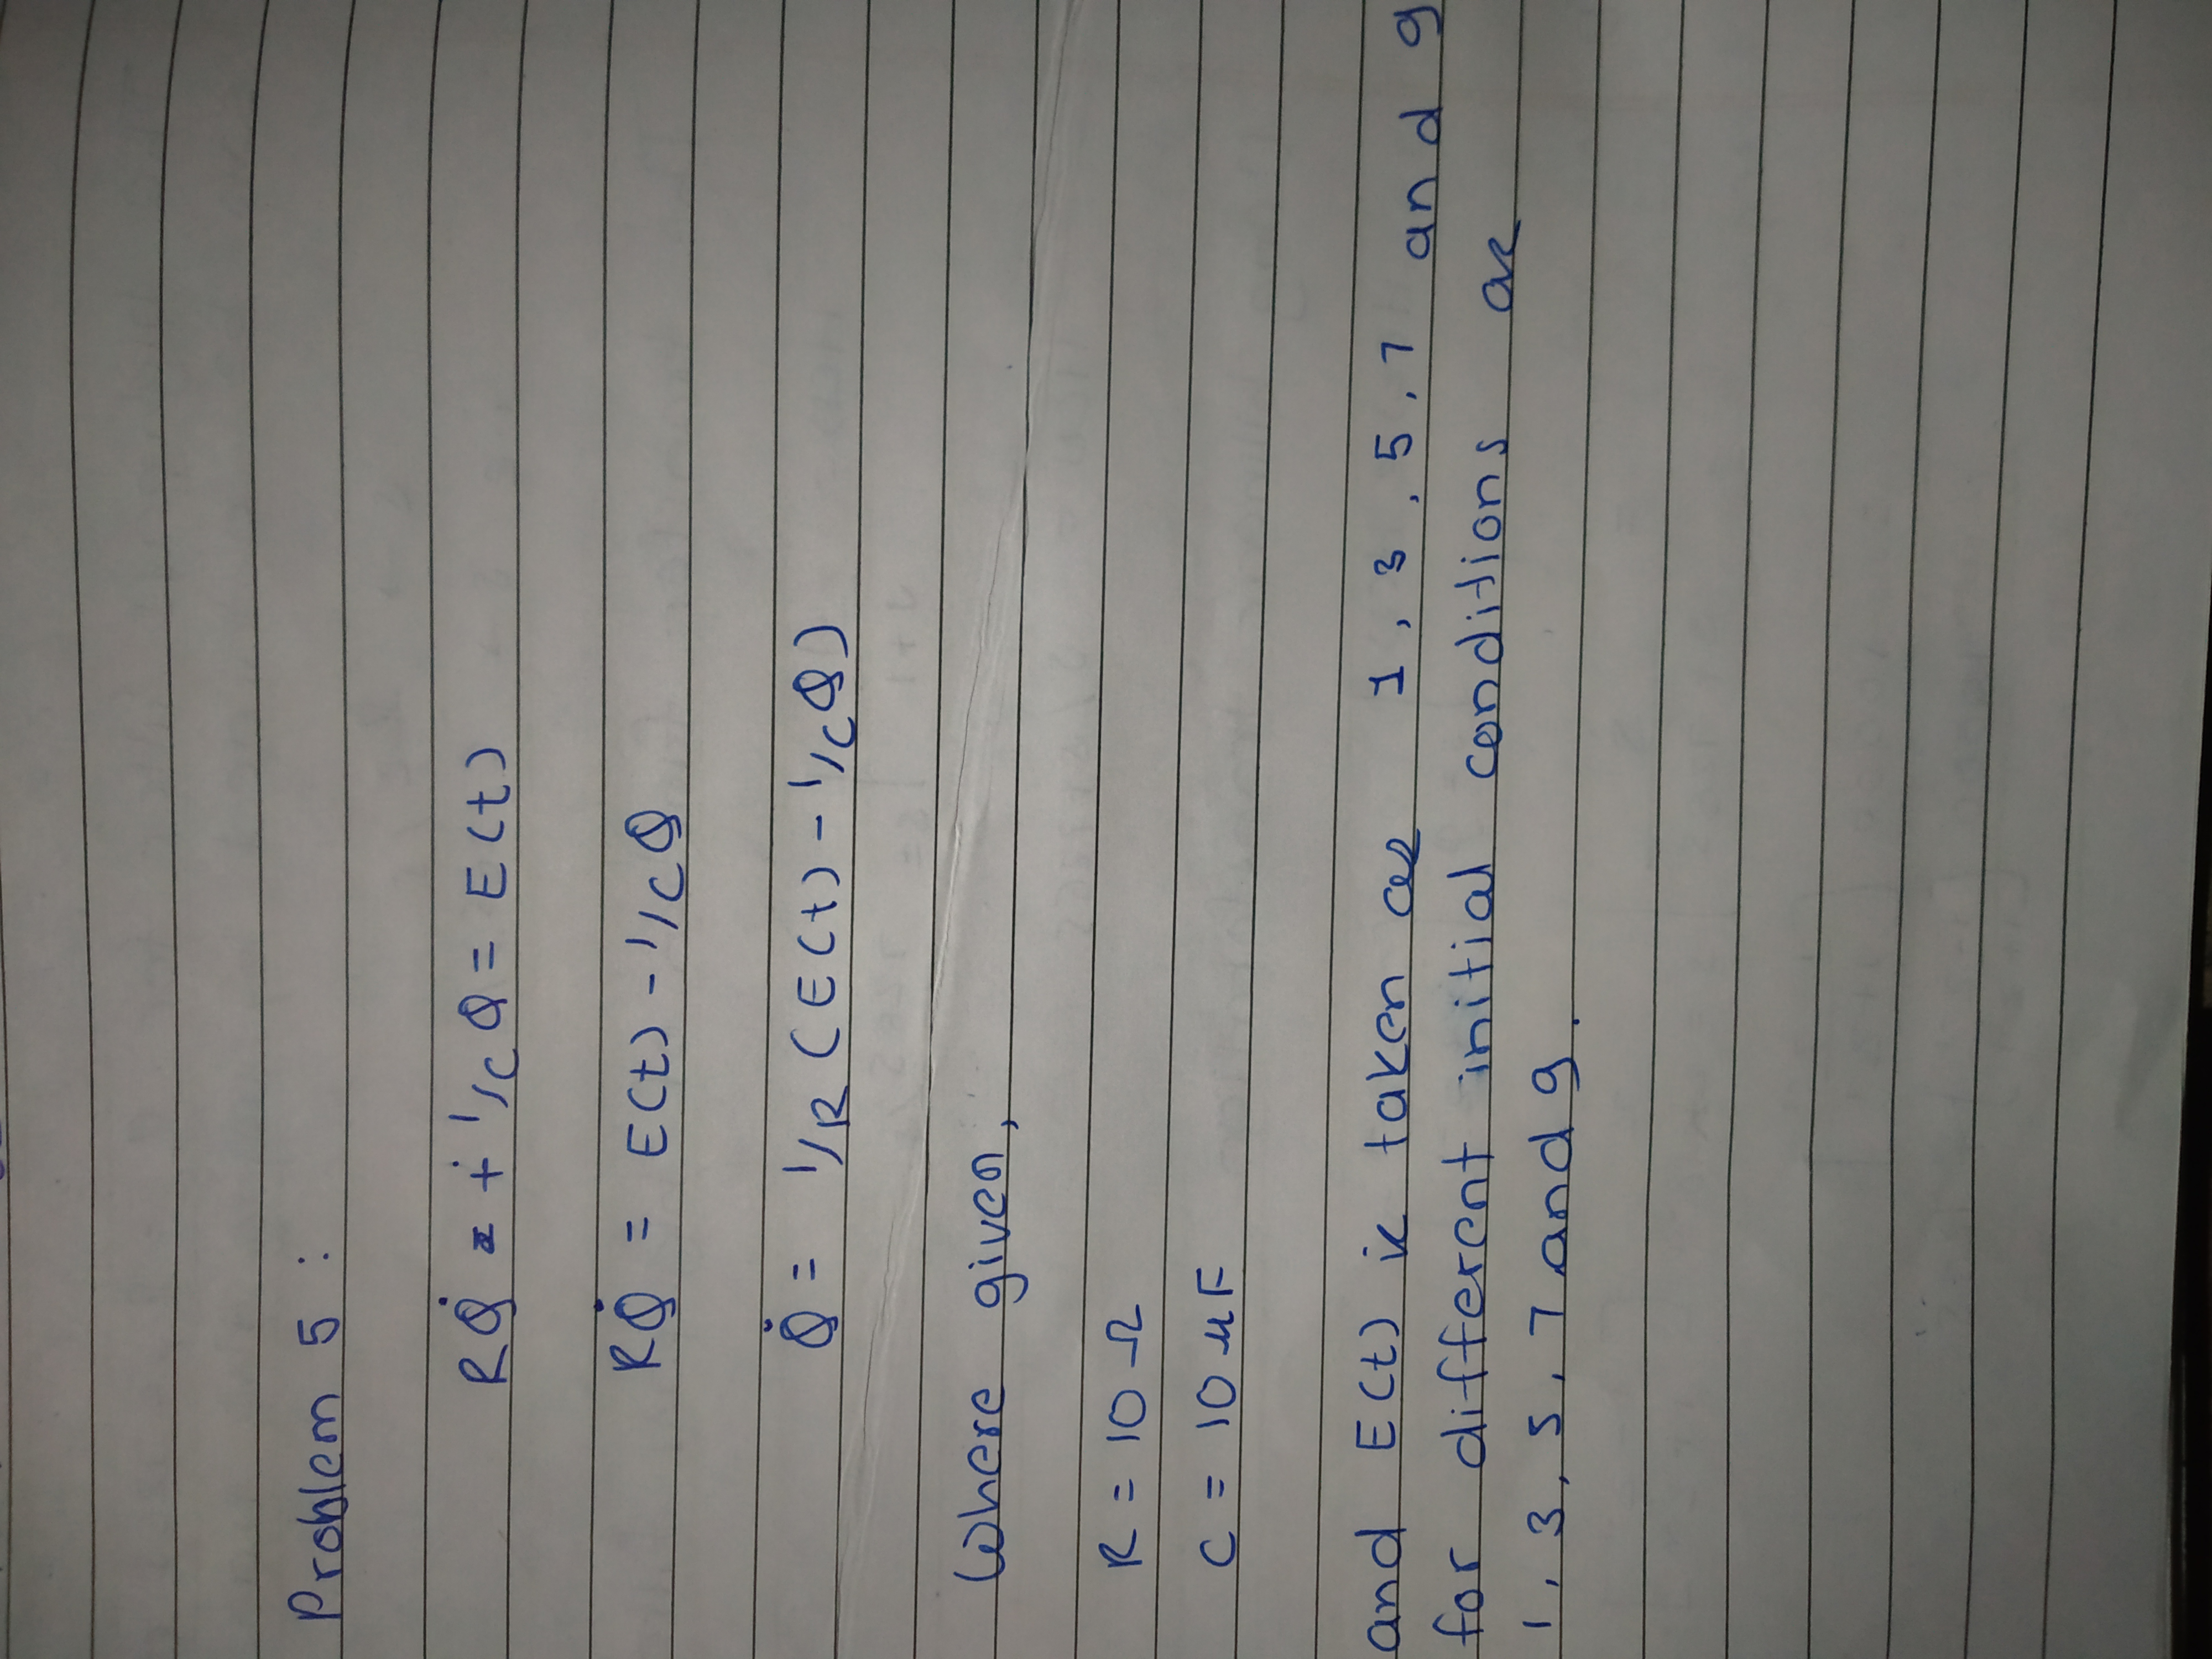 Problem 5 :
RQ̇ = + 1/C Q = E(t)
RQ̇ = E(t) - 1/C Q
Q̇ = 1/R (E(t) - 1/C Q)
Where given,
R = 10 Ω
C = 10 μF
and E(t) is taken as 1, 3, 5, 7 and 9
for different initial conditions as
1, 3, 5, 7 and 9.